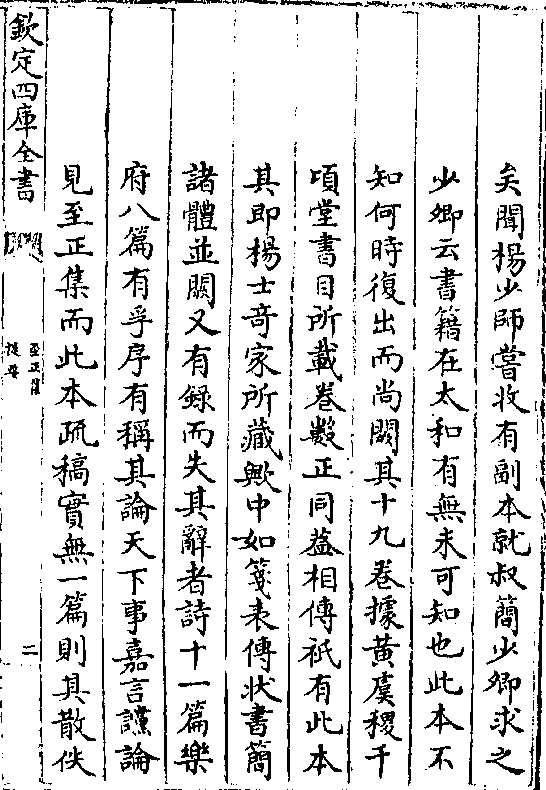 矣聞楊少師嘗收有副本就叔簡少卿求之
少卿云書籍在太和有無未可知也此本不
知何時復出而尚闕其十九卷據黃虞稷千
頃堂書目所載卷數正同葢相傳祇有此本
其即楊士竒家所藏歟中如箋表傳状書簡
諸體並闕又有録而失其辭者詩十一篇樂
府八篇有孚序有稱其論天下事嘉言讜論
見至正集而此本疏稿實無一篇則其散佚
欽定四庫全書
至正集
提要
二